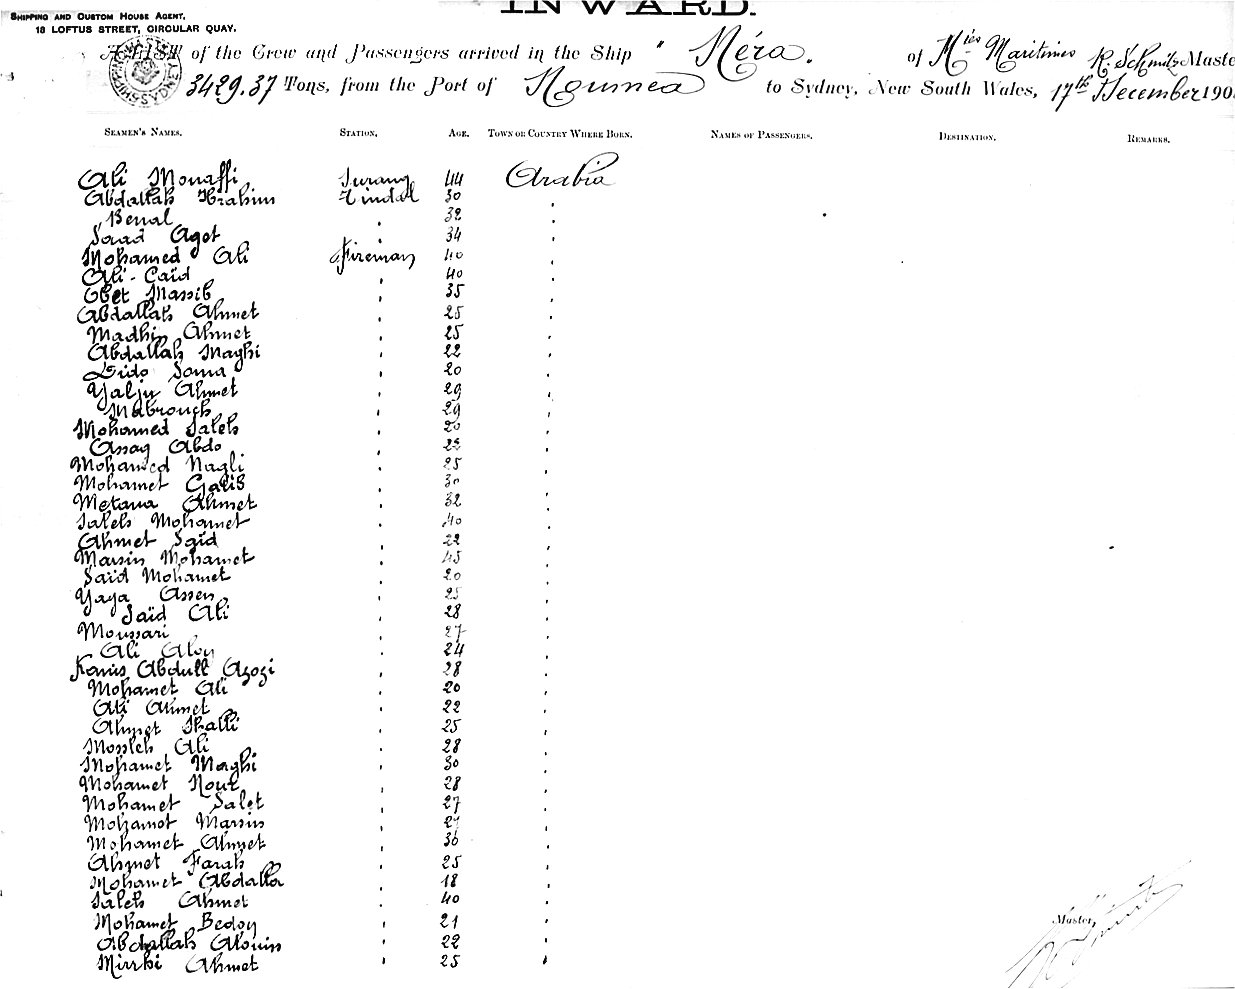 INWARD.
SHIPPING AND CUSTOM HOUSE AGENT,
18 LOFTUS STREET, CIRCULAR QUAY.
A LIST of the Crew and Passengers arrived in the Ship " Néra. of Mies Maritimes R. Schmitz Maste
3429.37 Tons, from the Port of Noumea to Sydney, New South Wales, 17th December 190
SEAMEN'S NAMES. STATION. AGE. TOWN OR COUNTRY WHERE BORN. NAMES OF PASSENGERS. DESTINATION. REMARKS.
Ali Monaffi Surang 44 Arabia
Abdallah Ibrahim Tindal 30 "
Benal " 32 "
Saad Agot " 34 "
Mohamed Ali Fireman 40 "
Ali-Caïd " 40 "
Obet Massib " 35 "
Abdallah Ahmet " 25 "
Madhin Ahmet " 25 "
Abdallah Maghi " 22 "
Dido Soma " 20 "
Yaljn Ahmet " 29 "
Mabrouch " 29 "
Mohamed Saleh " 20 "
Assag Abdo " 22 "
Mohamed Nagli " 25 "
Mohamet Galib " 30 "
Metana Ahmet " 32 "
Saleh Mohamet " 40 "
Ahmet Said " 22 "
Massin Mohamet " 45 "
Saïd Mohamet " 20 "
Yaya Assen " 25 "
Saïd Ali " 28 "
Moussari " 27 "
Ali Aloy " 24 "
Kanus Abdull Azozi " 28 "
Mohamet Ali " 20 "
Ali Ahmet " 22 "
Ahmet Skalli " 25 "
Mosleh Ali " 28 "
Mohamet Maghi " 30 "
Mohamet Nout " 28 "
Mohamet Salet " 27 "
Mohamet Massin " 27 "
Mohamet Ahmet " 36 "
Ahmet Farah " 25 "
Mohamet Abdalla " 18 "
Saleh Ahmet " 40 "
Mohamet Bedoy " 21 "
Abdallah Alouin " 22 "
Mirrbi Ahmet " 25 "
Master,